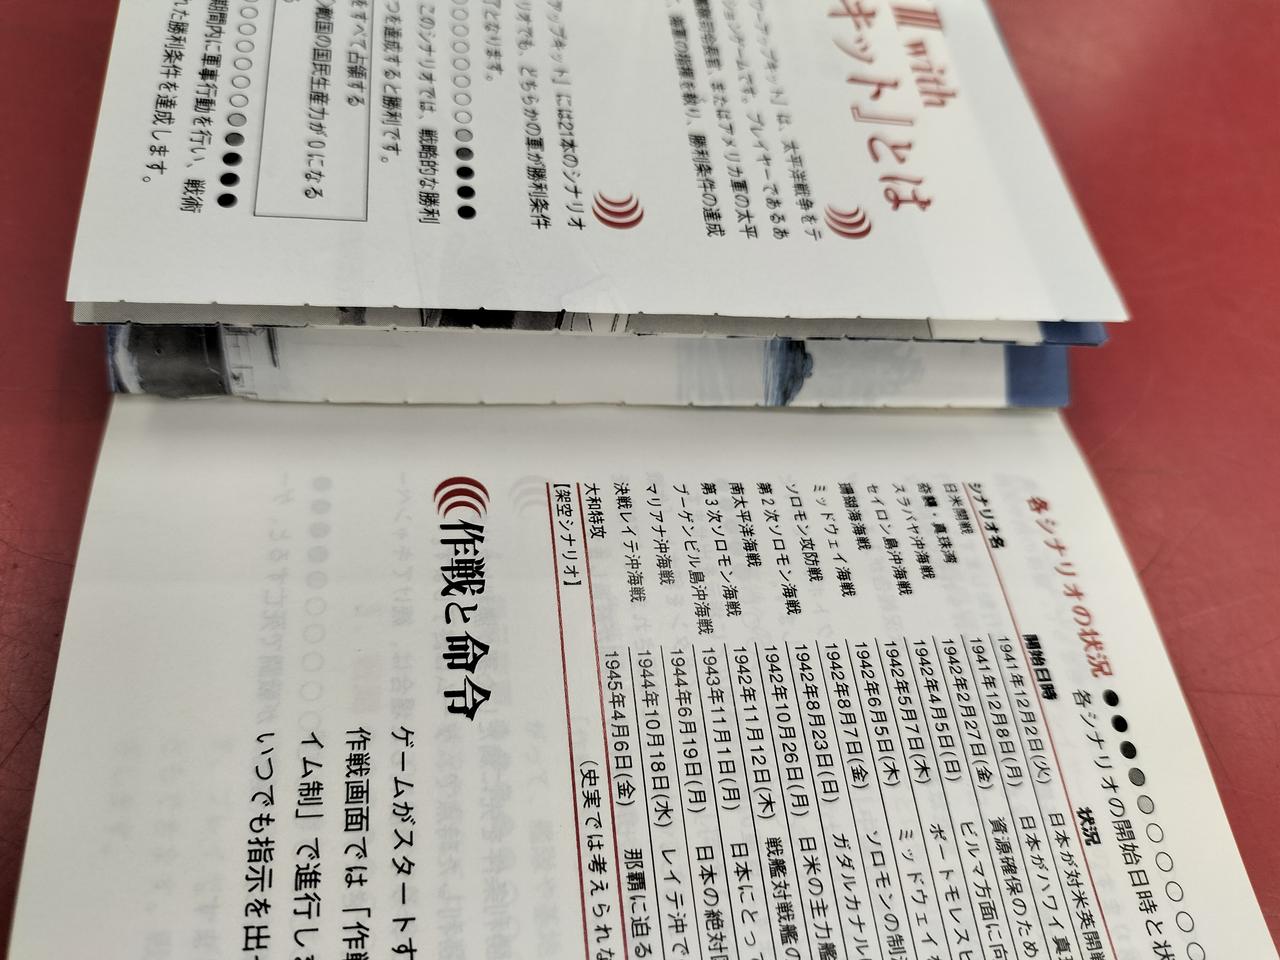 III with
キット』とは
ワーアップキット』は、太平洋戦争をテ
ションゲームです。プレイヤーであるあ
官、またはアメリカ軍の太平
、陸軍の指揮を執り、勝利条件の達成
アップキット』には21本のシナリオ
リオでも、どちらかの軍が勝利条件
てとなります。
○○○○○○●●●●●
このシナリオでは、戦略的な勝利
つを達成すると勝利です。
をすべて占領する
敵国の国民生産力が0になる
○○○○○○○●●●●●
期間内に軍事行動を行い、戦術
れた勝利条件を達成します。
各シナリオの状況 ●●●●○○○○○○
各シナリオの開始日時と状
シナリオ名 開始日時 状況
日米開戦 1941年12月2日(火) 日本が対米英開戦
奇襲・真珠湾 1941年12月8日(月) 日本がハワイ真
スラバヤ沖海戦 1942年2月27日(金) 資源確保のため
セイロン島沖海戦 1942年4月5日(日) ビルマ方面に向
珊瑚海海戦 1942年5月7日(木) ポートモレスビ
ミッドウェイ海戦 1942年6月5日(木) ミッドウェイ
ソロモン攻防戦 1942年8月7日(金) ソロモンの制
第2次ソロモン海戦 1942年8月23日(日) ガダルカナル
南太平洋海戦 1942年10月26日(月) 日米の主力艦
第3次ソロモン海戦 1942年11月12日(木) 戦艦対戦艦の
ブーゲンビル島沖海戦 1943年11月1日(月) 日本にとって
マリアナ沖海戦 1944年6月19日(月) 日本の絶対
決戦レイテ沖海戦 1944年10月18日(水) レイテ沖で
大和特攻 1945年4月6日(金) 那覇に迫る
【架空シナリオ】 (史実では考えられな
作戦と命令
ゲームがスタートす
作戦画面では「作戦
イム制」で進行し
いつでも指示を出